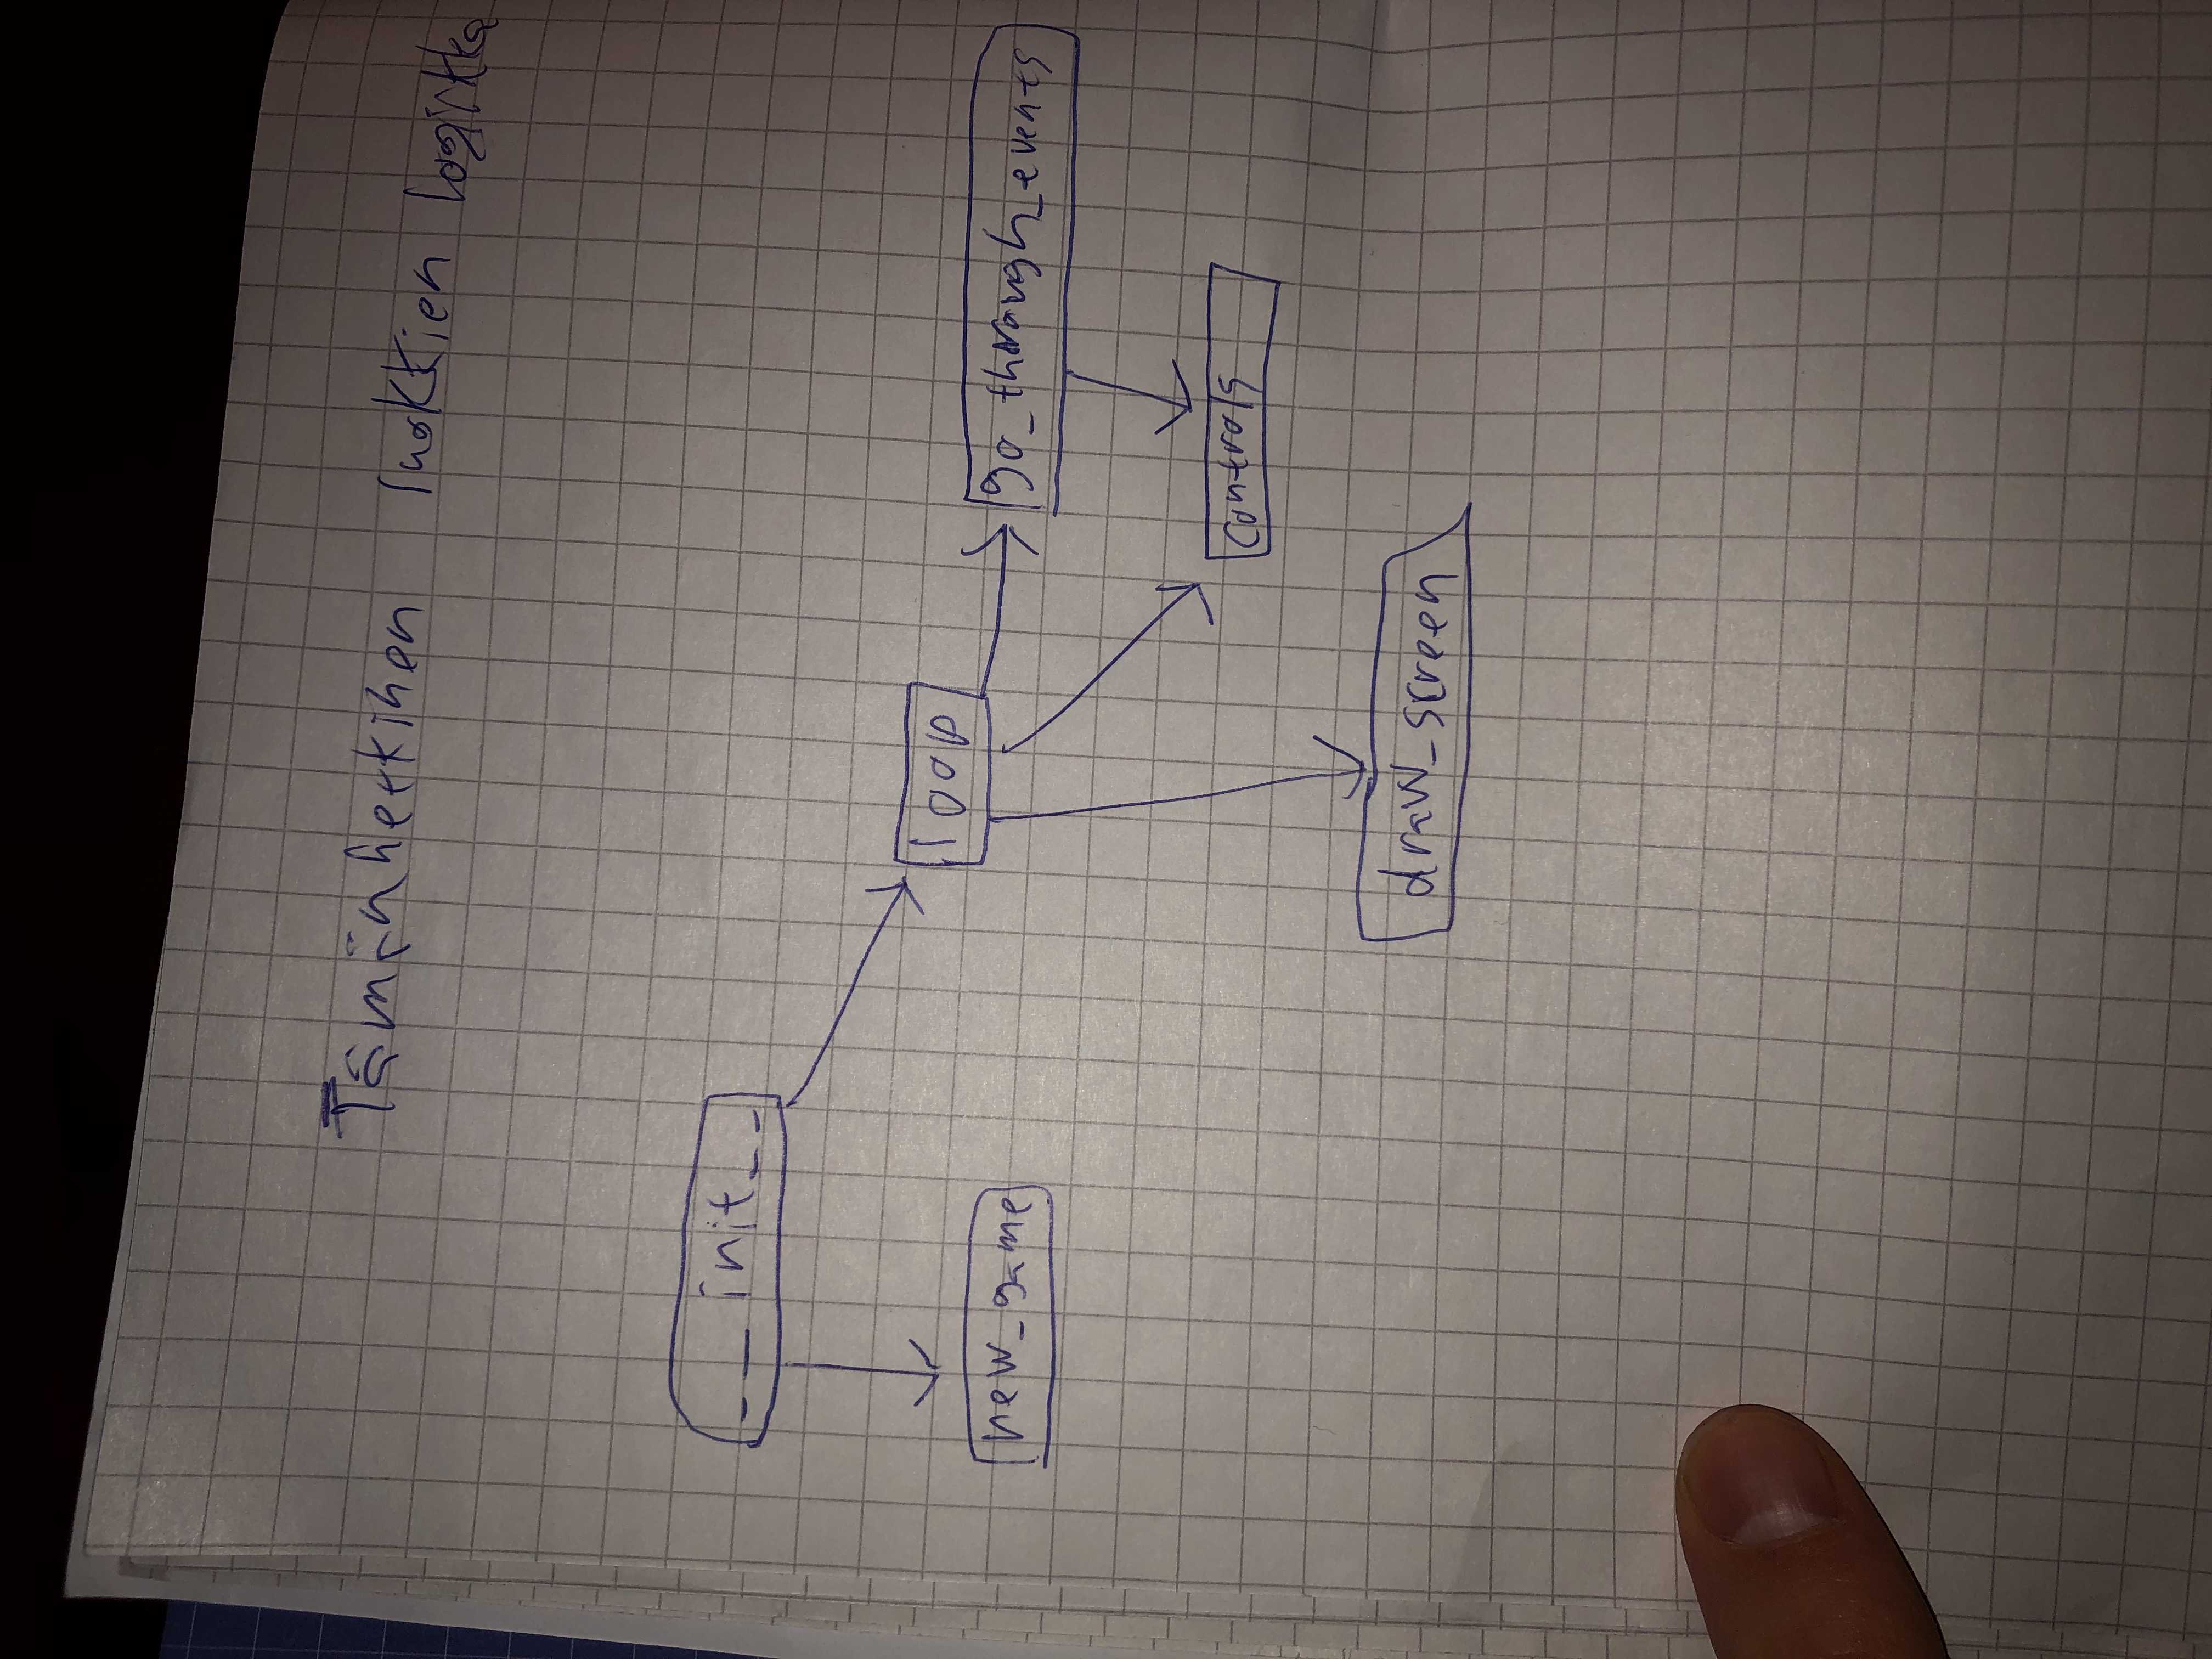 Tämänhetkinen luokkien logiikka
__init__
loop
new_game
go_through_events
controls
draw_screen